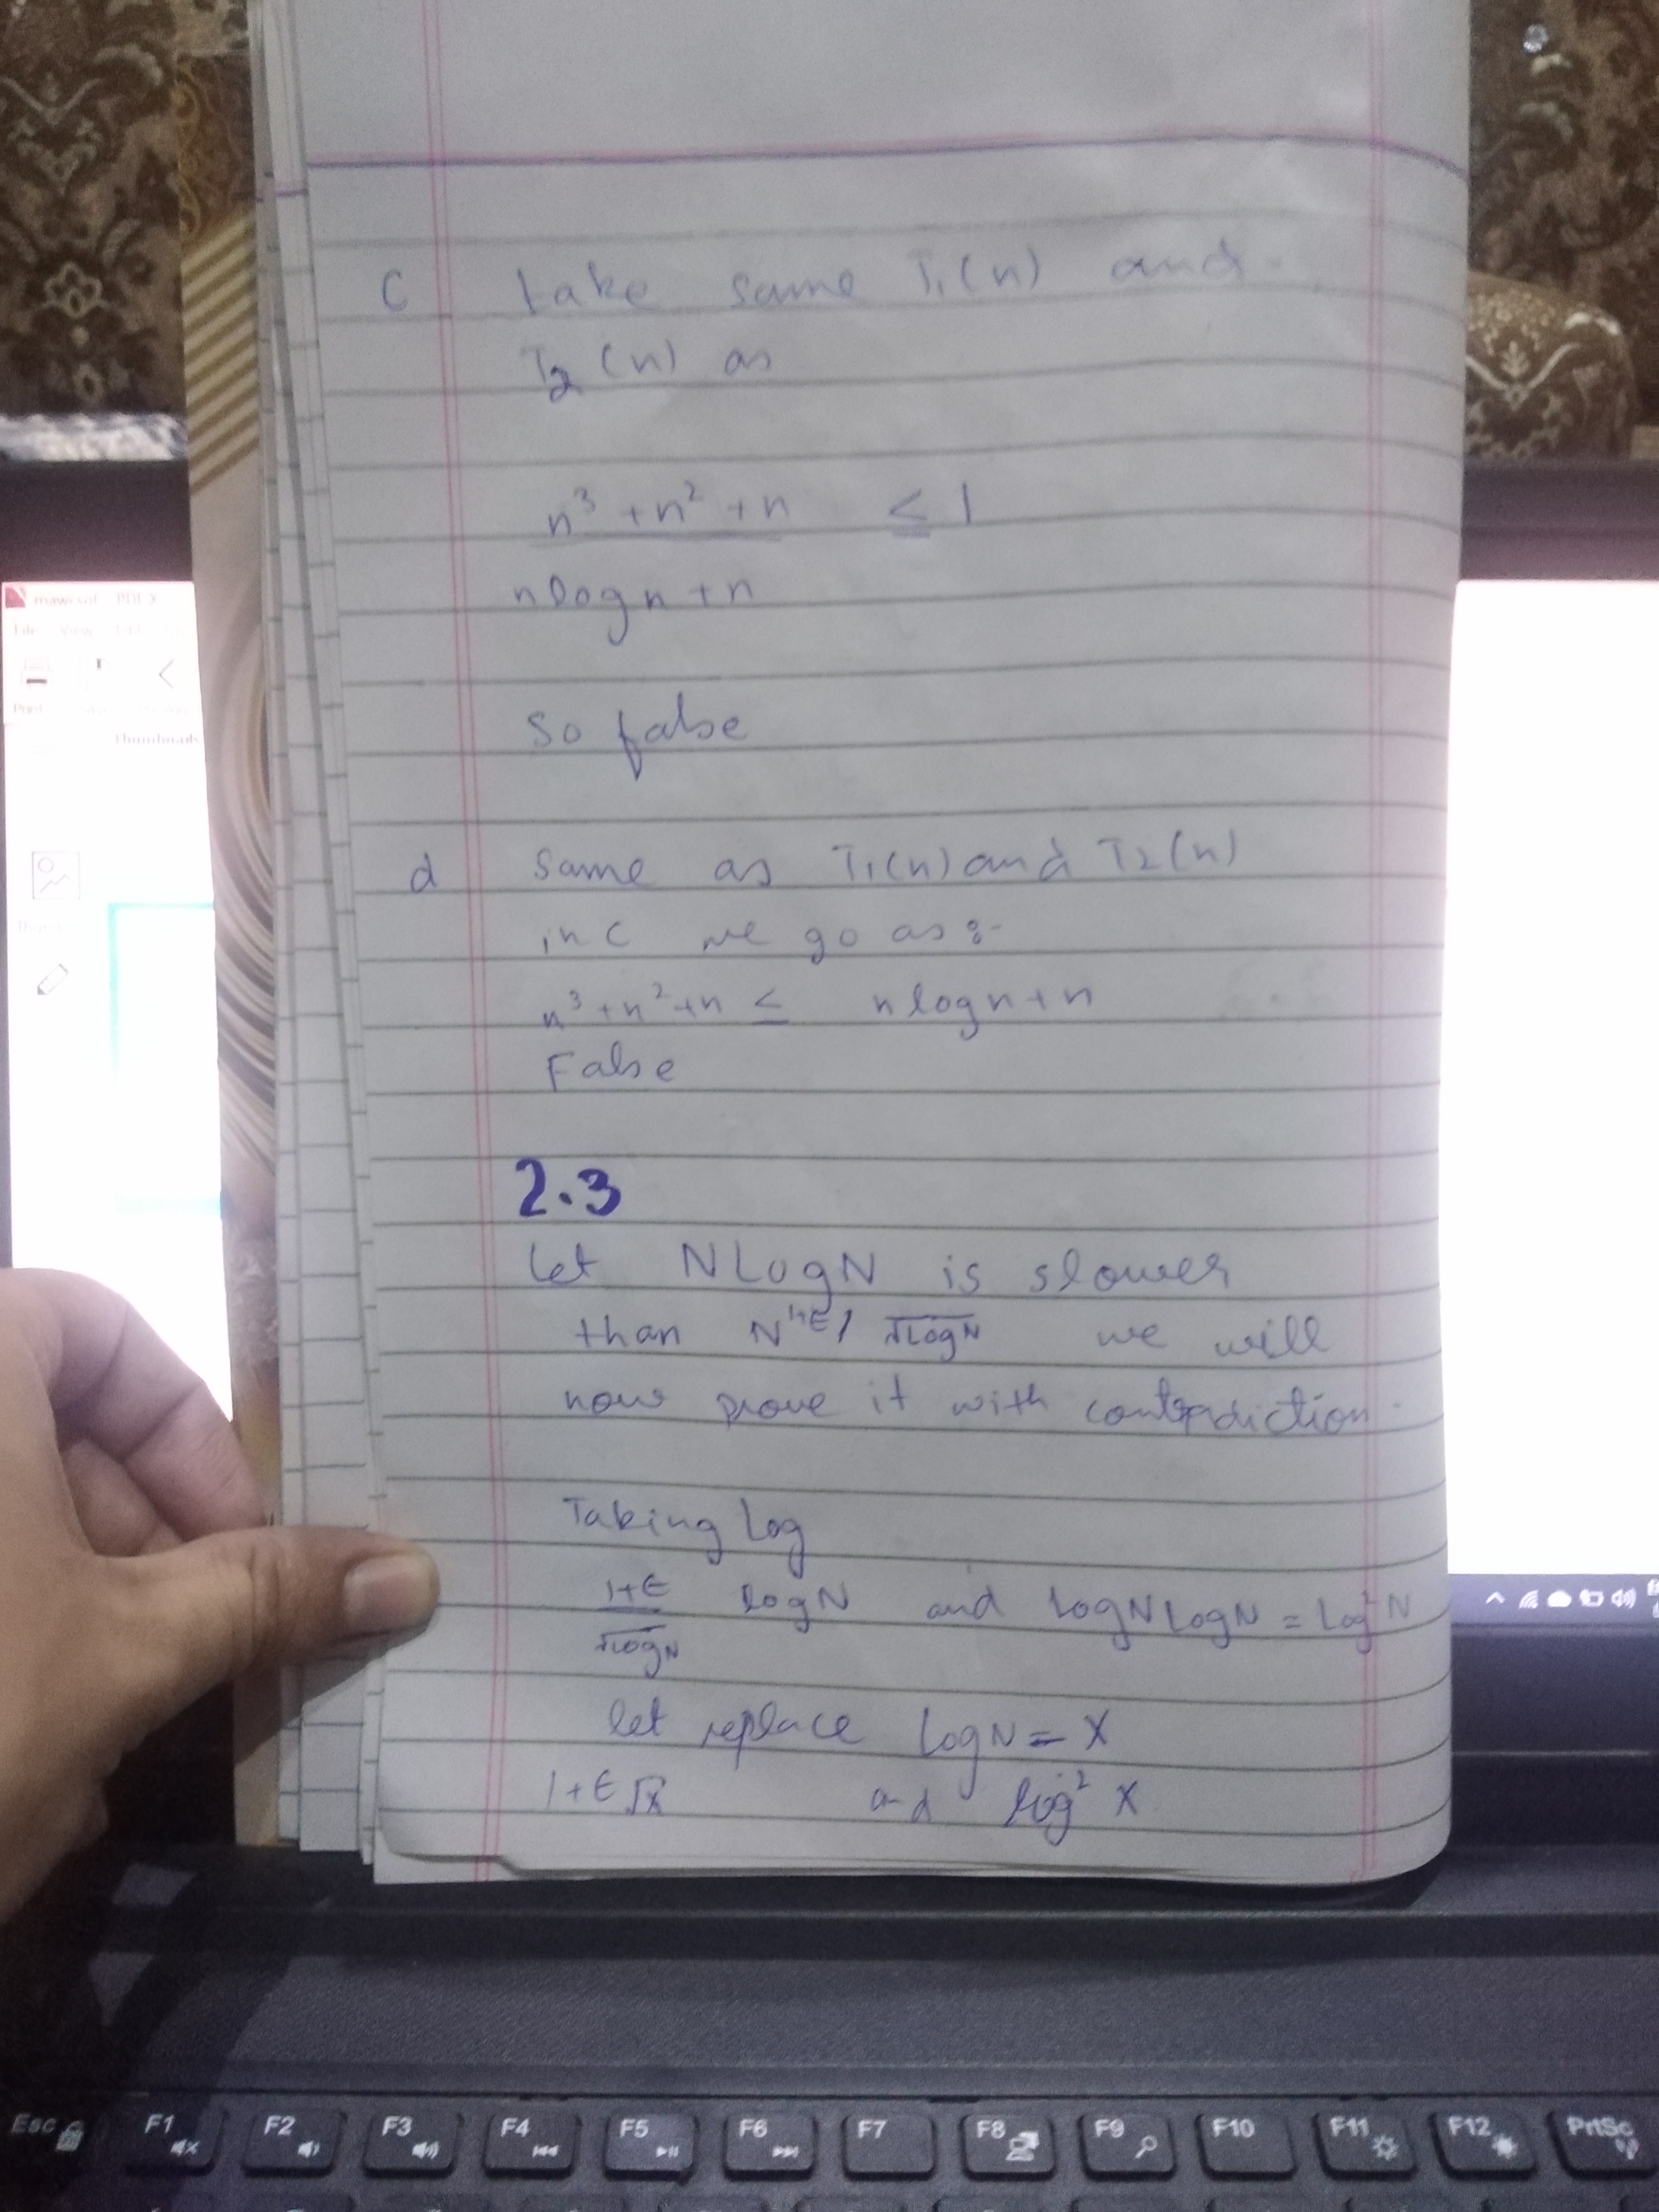 c take same T₁(n) and
T₂(n) as
n³ + n² + n ≤ 1
nlogn + n
So false
d Same as T₁(n) and T₂(n)
in c we go as :-
n³ + n² + n ≤ nlogn + n
False
2.3
Let NLogN is slower
than N^1+ε/√LogN we will
now prove it with contradiction.
Taking Log
1+ε/√LogN logN and LogN LogN = Log²N
let replace LogN = X
1+ε√x and log² x
File View
Print
Thumbnails
Esc F1 F2 F3 F4 F5 F6 F7 F8 F9 F10 F11 F12 PrtSc